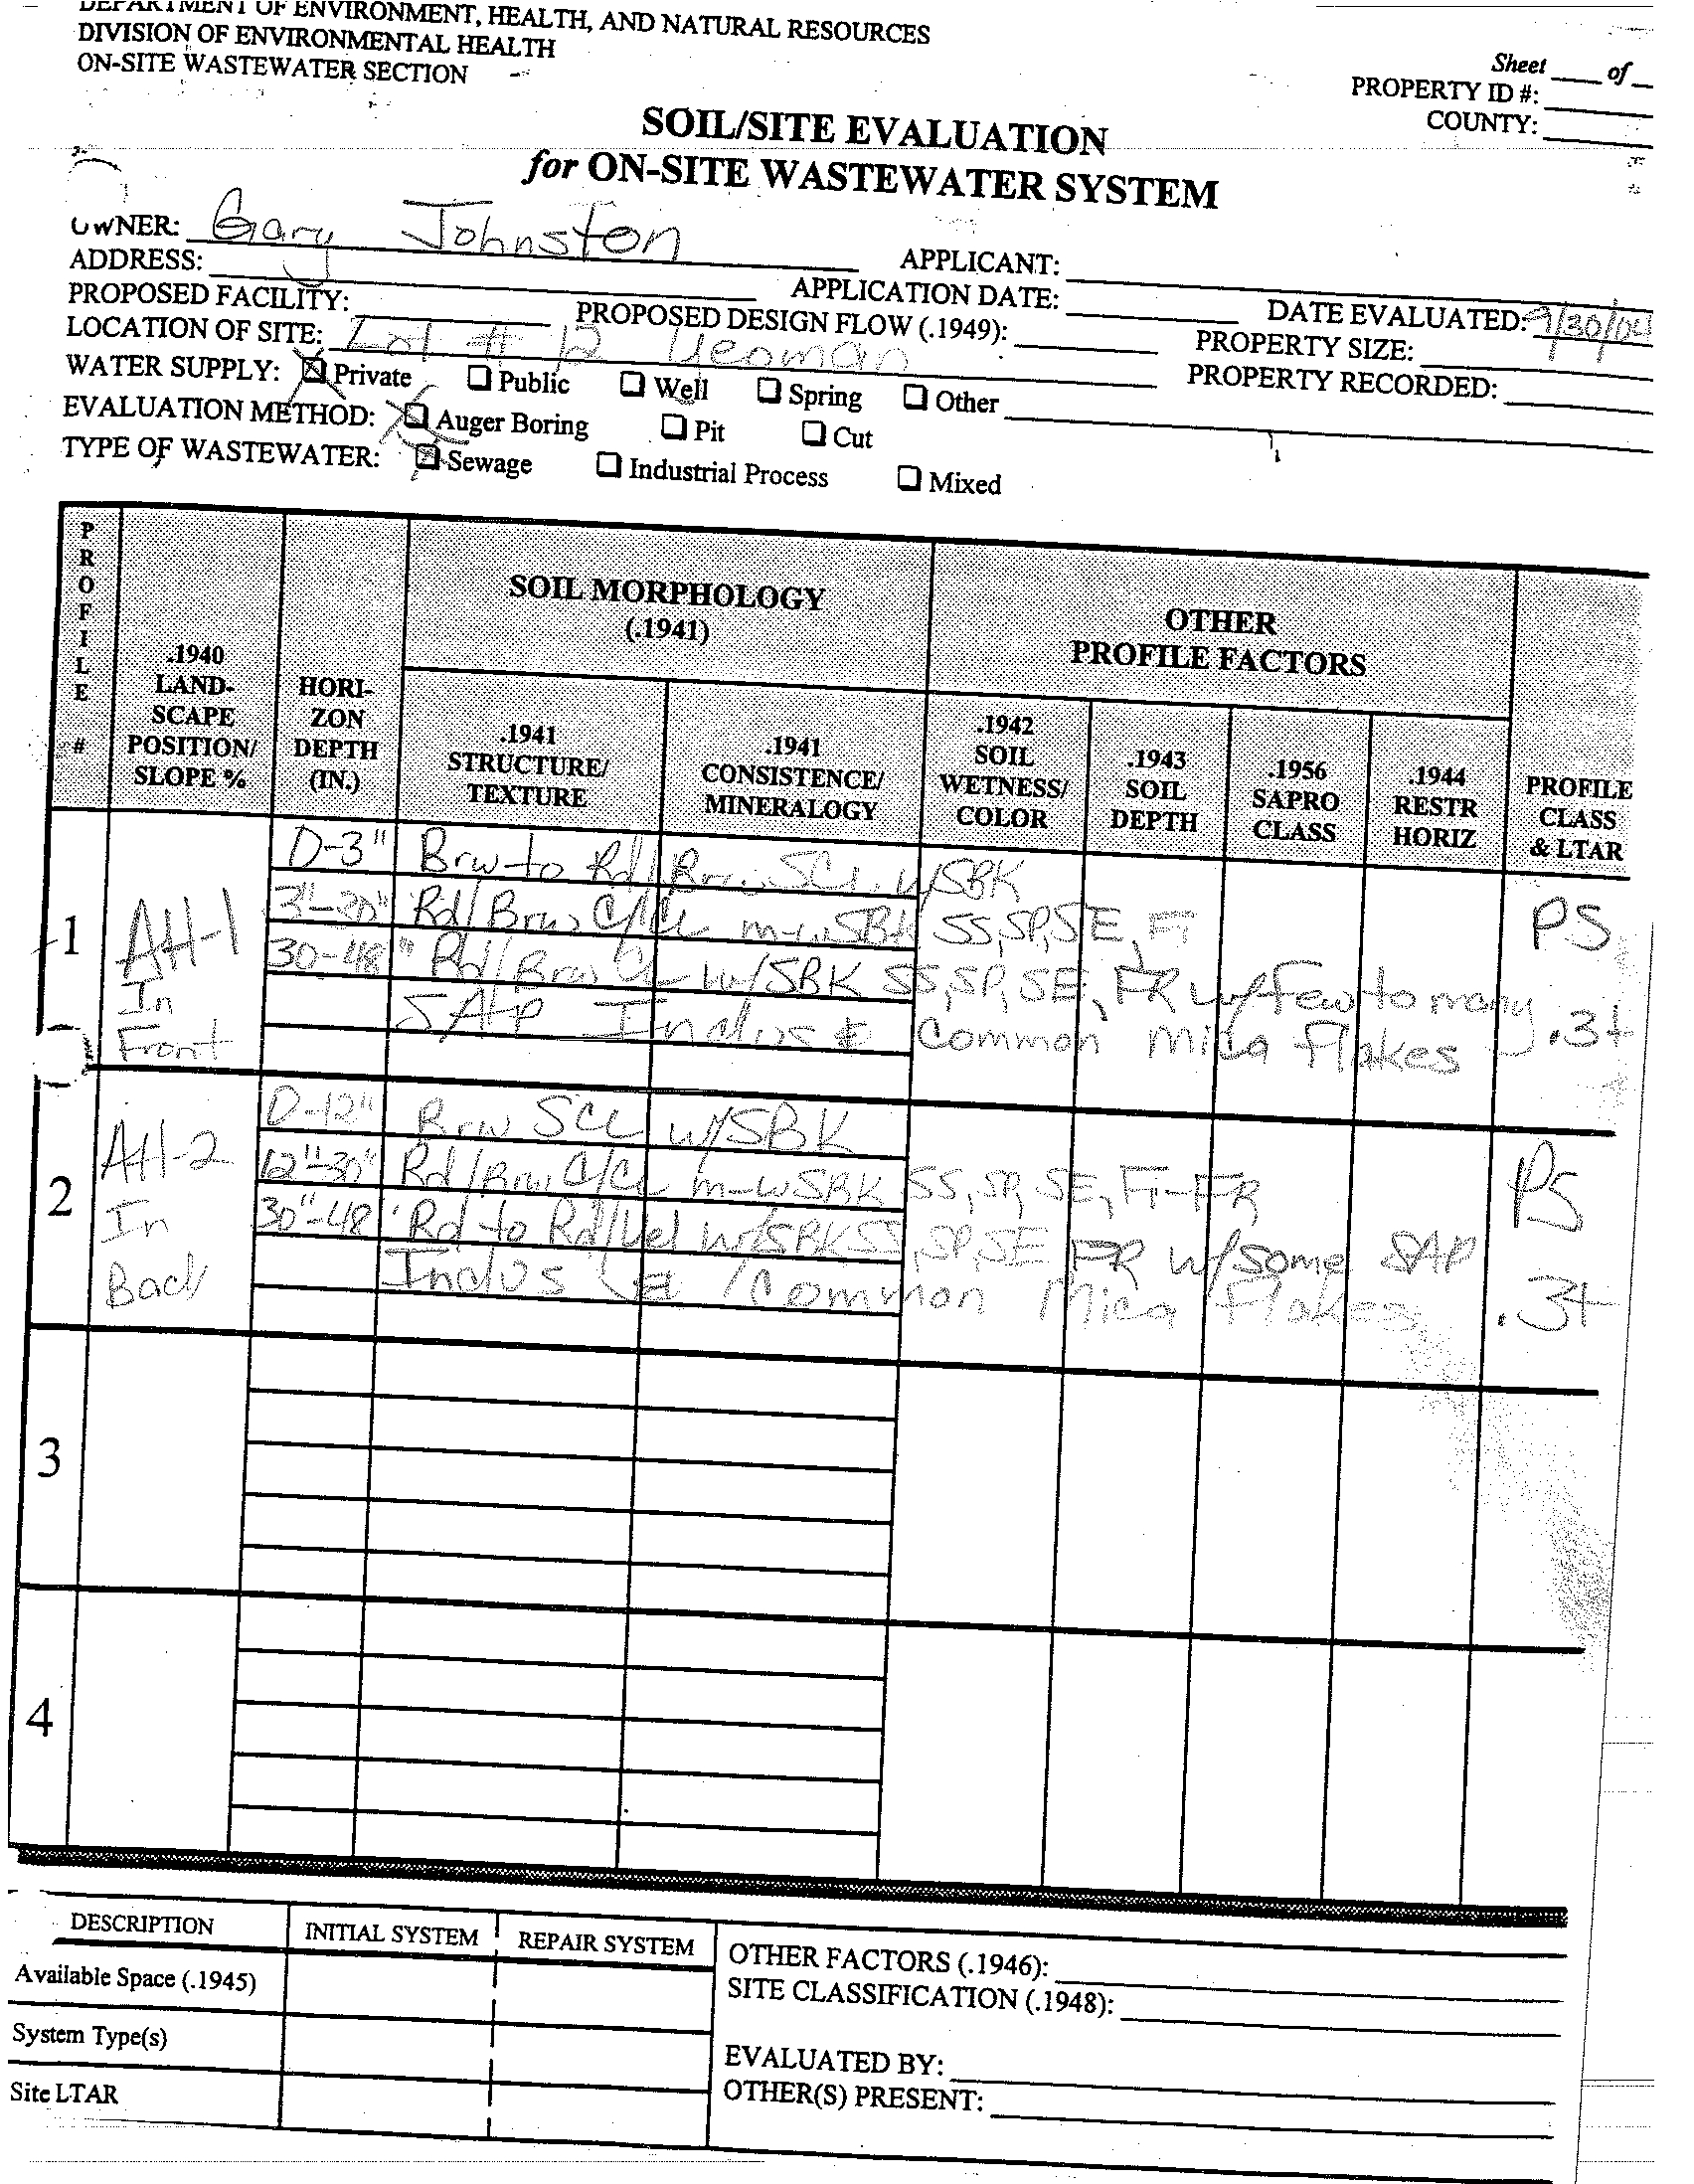 DEPARTMENT OF ENVIRONMENT, HEALTH, AND NATURAL RESOURCES
DIVISION OF ENVIRONMENTAL HEALTH
ON-SITE WASTEWATER SECTION
Sheet ____ of __
PROPERTY ID #:
COUNTY:
SOIL/SITE EVALUATION
for ON-SITE WASTEWATER SYSTEM
OWNER: Gary Johnston
APPLICANT:
ADDRESS:
APPLICATION DATE:
DATE EVALUATED: 9/30/04
PROPOSED FACILITY:
PROPOSED DESIGN FLOW (.1949):
PROPERTY SIZE:
LOCATION OF SITE: Lot # 12 Yeoman
PROPERTY RECORDED:
WATER SUPPLY: Private Public Well Spring Other
EVALUATION METHOD: Auger Boring Pit Cut
TYPE OF WASTEWATER: Sewage Industrial Process Mixed
PROFILE #
.1940 LAND-SCAPE POSITION/ SLOPE %
HORI-ZON DEPTH (IN.)
SOIL MORPHOLOGY (.1941)
.1941 STRUCTURE/ TEXTURE
.1941 CONSISTENCE/ MINERALOGY
OTHER PROFILE FACTORS
.1942 SOIL WETNESS/ COLOR
.1943 SOIL DEPTH
.1956 SAPRO CLASS
.1944 RESTR HORIZ
PROFILE CLASS & LTAR
1
AH-1
In
Front
0-3" Brw to Rd/Brw SCL w/SBK
Rd/Brw C/CL SBK SS, SP, SE, Fi
30-48" Rd/Brw CL w/SBK SS, SP, SE, FR w/few to many
SAP Inclus & Common Mica Flakes
PS
.3+
2
AH-2
In
Back
0-12" Brw SCL w/SBK
12"-30" Rd/Brw C/CL m-wSBK SS, SP, SE, Fi-FR
30"-48" Rd to Rd/Yel w/SBK SS, SP, SE FR w/some SAP
Inclus & Common Mica Flakes
PS
.3+
3
4
DESCRIPTION INITIAL SYSTEM REPAIR SYSTEM
Available Space (.1945)
System Type(s)
Site LTAR
OTHER FACTORS (.1946):
SITE CLASSIFICATION (.1948):
EVALUATED BY:
OTHER(S) PRESENT: